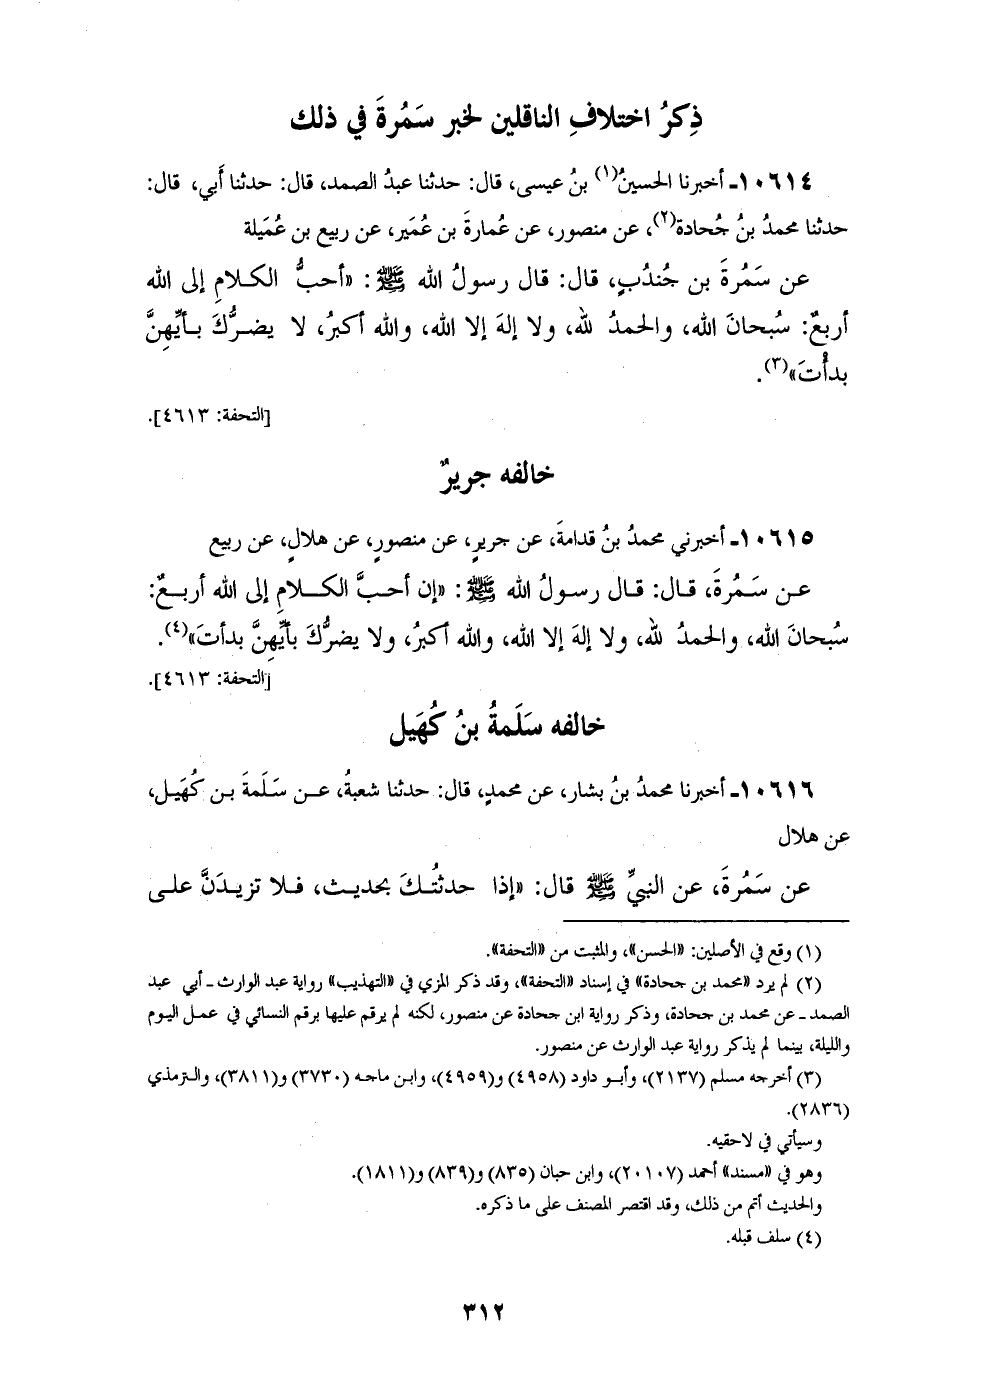 ذِكرُ اختلافِ الناقلين لخبر سَمُرةَ في ذلك
١٠٦١٤ـ أخبرنا الحسينُ(١) بنُ عيسى، قال: حدثنا عبدُ الصمد، قال: حدثنا أَبي، قال:
حدثنا محمدُ بنُ جُحادة(٢)، عن منصور، عن عُمارةَ بن عُمَير، عن ربيع بن عُمَيلة
عن سَمُرةَ بن جُندُبٍ، قال: قال رسولُ الله ﷺ: «أحبُّ الكلامِ إلى الله
أربعٌ: سُبحانَ الله، والحمدُ لله، ولا إلهَ إلا الله، والله أكبرُ، لا يضرُّكَ بأيِّهِنَّ
بدأْتَ»(٣).
[التحفة: ٤٦١٣].
خالفه جريرٌ
١٠٦١٥ـ أخبرني محمدُ بنُ قدامةَ، عن جريرٍ، عن منصورٍ، عن هلالٍ، عن ربيع
عن سَمُرةَ، قال: قال رسولُ الله ﷺ: «إن أحبَّ الكلامِ إلى الله أربعٌ:
سُبحانَ الله، والحمدُ لله، ولا إلهَ إلا الله، والله أكبرُ، ولا يضرُّكَ بأيِّهِنَّ بدأتَ»(٤).
[التحفة: ٤٦١٣].
خالفه سَلَمةُ بنُ كُهَيل
١٠٦١٦ـ أخبرنا محمدُ بنُ بشار، عن محمدٍ، قال: حدثنا شعبةُ، عن سَلَمةَ بن كُهَيل،
عن هلال
عن سَمُرةَ، عن النبيِّ ﷺ قال: «إذا حدثتُكَ بحديث، فلا تزيدَنَّ على
(١) وقع في الأصلين: «الحسن»، والمثبت من «التحفة».
(٢) لم يرد «محمد بن جحادة» في إسناد «التحفة»، وقد ذكر المزي في «التهذيب» رواية عبد الوارث ـ أبي عبد
الصمد ـ عن محمد بن جحادة، وذكر رواية ابن جحادة عن منصور، لكنه لم يرقم عليها برقم النسائي في عمل اليوم
والليلة، بينما لم يذكر رواية عبد الوارث عن منصور.
(٣) أخرجه مسلم (٢١٣٧)، وأبو داود (٤٩٥٨) و(٤٩٥٩)، وابن ماجه (٣٧٣٠) و(٣٨١١)، والترمذي
(٢٨٣٦).
وسيأتي في لاحقيه.
وهو في «مسند» أحمد (٢٠١٠٧)، وابن حبان (٨٣٥) و(٨٣٩) و(١٨١١).
والحديث أتم من ذلك، وقد اقتصر المصنف على ما ذكره.
(٤) سلف قبله.
٣١٢